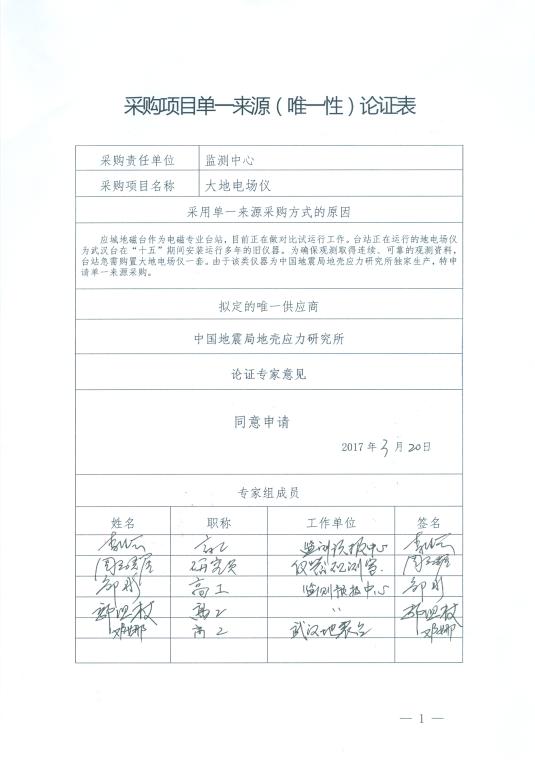 采购项目单一来源（唯一性）论证表
采购责任单位 监测中心
采购项目名称 大地电场仪
采用单一来源采购方式的原因
应城地磁台作为电磁专业台站，目前正在做对比试运行工作。台站正在运行的地电场仪
为武汉台在“十五”期间安装运行多年的旧仪器。为确保观测取得连续、可靠的观测资料，
台站急需购置大地电场仪一套。由于该类仪器为中国地震局地壳应力研究所独家生产，特申
请单一来源采购。
拟定的唯一供应商
中国地震局地壳应力研究所
论证专家意见
同意申请
2017 年 3 月 20 日
专家组成员
姓名 职称 工作单位 签名
高工 监测预报中心
研究员
高工 监测预报中心
高工 〃
高工 武汉地震台
— 1 —